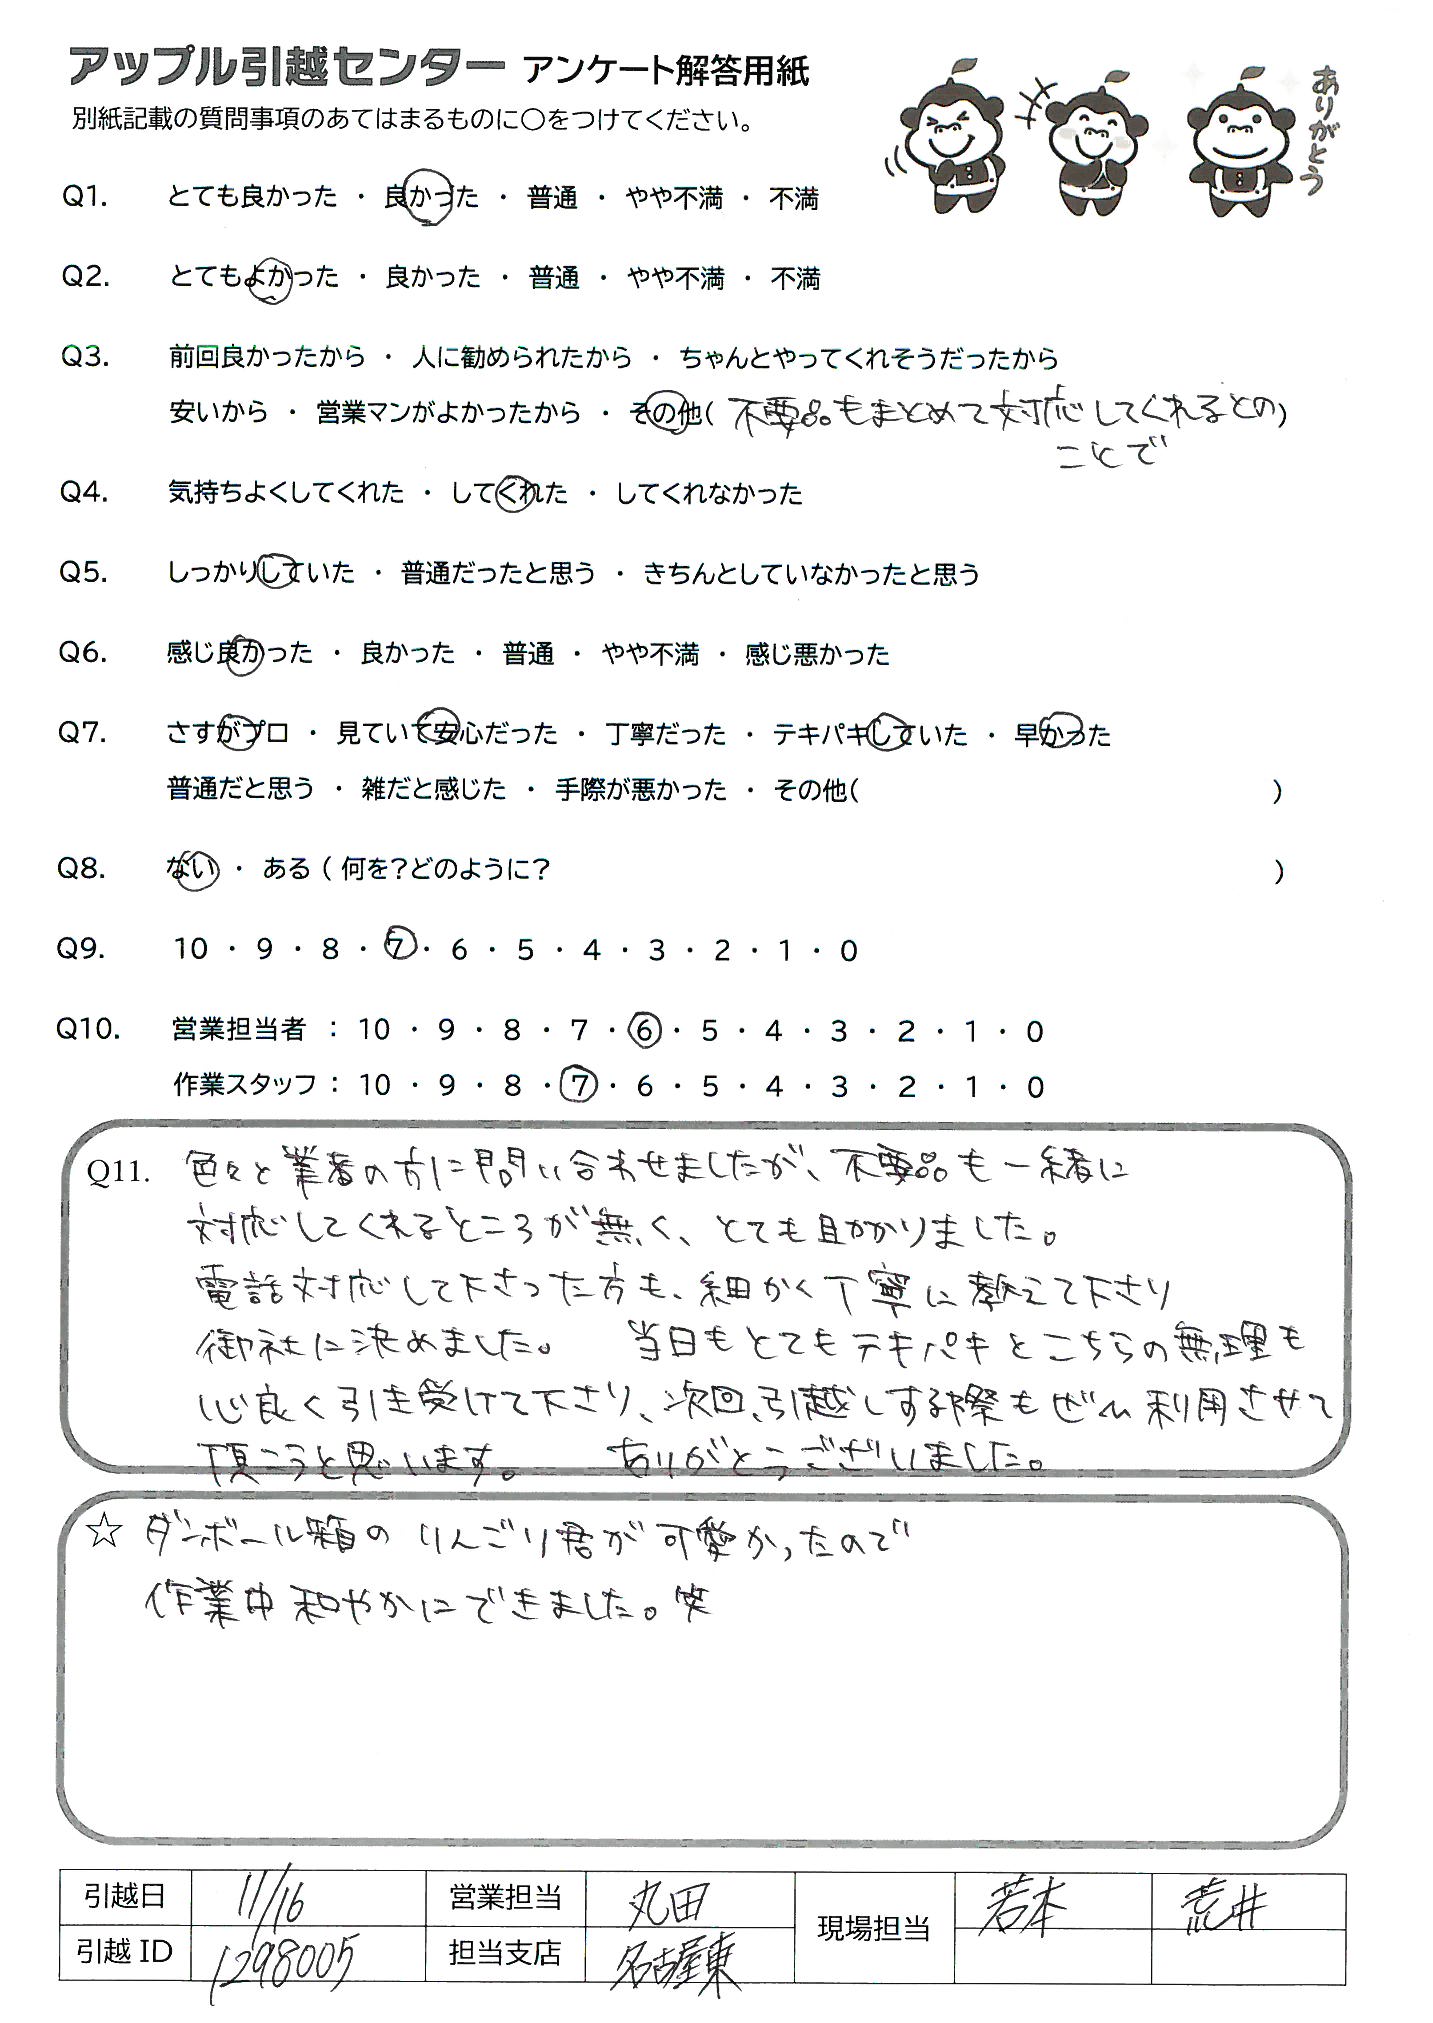 アップル引越センター アンケート解答用紙
別紙記載の質問事項のあてはまるものに〇をつけてください。
ありがとう
Q1. とても良かった ・ 良かった ・ 普通 ・ やや不満 ・ 不満
Q2. とてもよかった ・ 良かった ・ 普通 ・ やや不満 ・ 不満
Q3. 前回良かったから ・ 人に勧められたから ・ ちゃんとやってくれそうだったから
安いから ・ 営業マンがよかったから ・ その他( 不要品もまとめて対応してくれるとの)
ことで
Q4. 気持ちよくしてくれた ・ してくれた ・ してくれなかった
Q5. しっかりしていた ・ 普通だったと思う ・ きちんとしていなかったと思う
Q6. 感じ良かった ・ 良かった ・ 普通 ・ やや不満 ・ 感じ悪かった
Q7. さすがプロ ・ 見ていて安心だった ・ 丁寧だった ・ テキパキしていた ・ 早かった
普通だと思う ・ 雑だと感じた ・ 手際が悪かった ・ その他( )
Q8. ない ・ ある ( 何を?どのように? )
Q9. 10 ・ 9 ・ 8 ・ 7 ・ 6 ・ 5 ・ 4 ・ 3 ・ 2 ・ 1 ・ 0
Q10. 営業担当者 : 10 ・ 9 ・ 8 ・ 7 ・ 6 ・ 5 ・ 4 ・ 3 ・ 2 ・ 1 ・ 0
作業スタッフ : 10 ・ 9 ・ 8 ・ 7 ・ 6 ・ 5 ・ 4 ・ 3 ・ 2 ・ 1 ・ 0
Q11. 色々と業者の方に問い合わせましたが、不要品も一緒に
対応してくれるところが無く、とても助かりました。
電話対応して下さった方も、細かく丁寧に教えて下さり
御社に決めました。 当日もとてもテキパキとこちらの無理も
心良く引き受けて下さり、次回、引越しする際もぜひ利用させて
頂こうと思います。 ありがとうございました。
☆ ダンボール箱のりんごり君が可愛かったので
作業中和やかにできました。笑
引越日 11/16 営業担当 丸田 現場担当 若本 荒井
引越 ID 1298005 担当支店 名古屋東